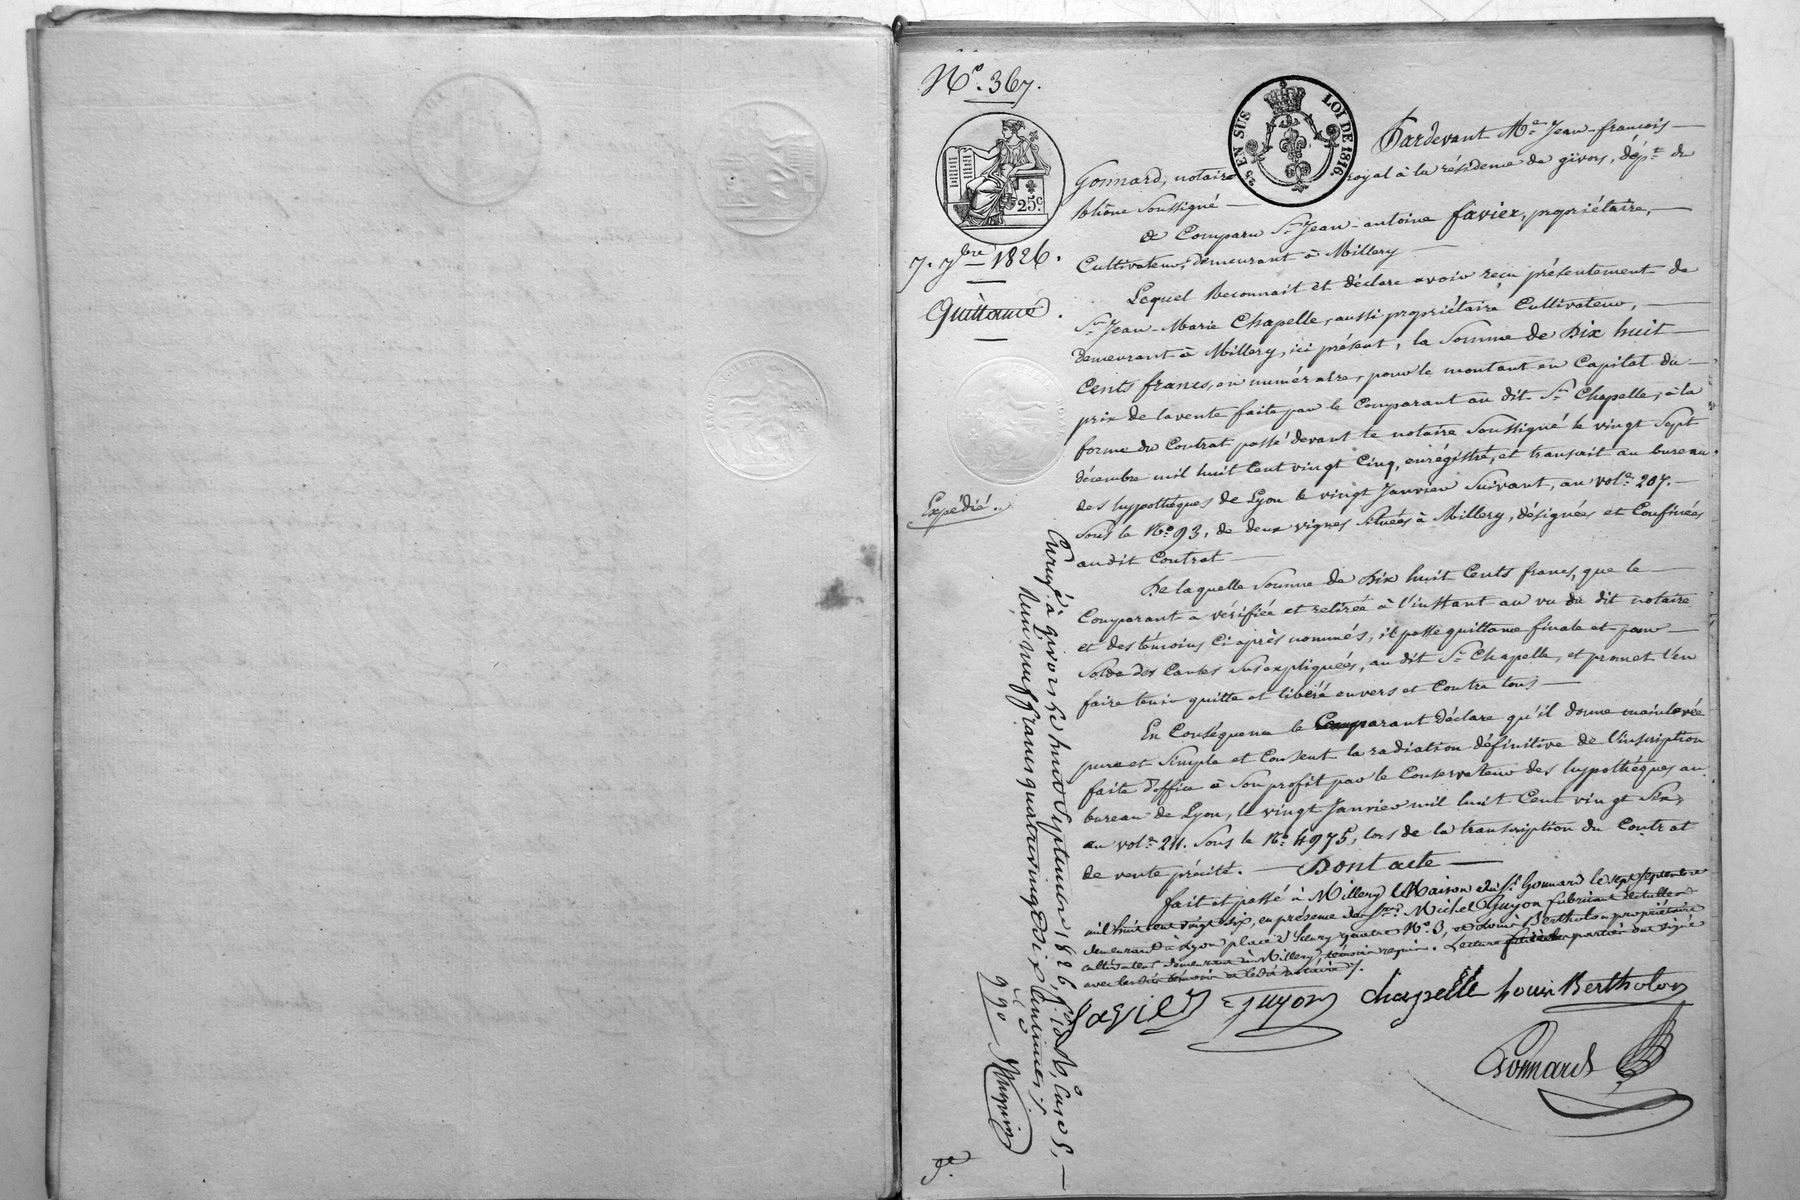 N.º 367.
25 EN SUS
LOI DE 1816.
25c.
7. 7bre 1826.
Quittance.
Expédié.
Pardevant Me Jean-françois
Gonnard, notaire royal à la résidence de givors, dépt. du
Rhône soussigné
a Comparu Sr Jean-antoine favier, propriétaire,
Cultivateur, demeurant à Millery
Lequel Reconnait et déclare avoir reçu présentement de
Sr Jean-Marie Chapelle, aussi propriétaire Cultivateur,
demeurant à Millery, ici présent, la Somme de Dix huit
Cents francs, en numéraire, pour le montant en Capital du
prix de la vente faite par le Comparant au dit Sr Chapelle, à la
forme du Contrat passé devant le notaire Soussigné le vingt Sept
décembre mil huit Cent vingt Cinq, enrégistré, et transcrit au bureau
des hypothèques de Lyon le vingt Janvier Suivant, au vole. 207.
Sous le No. 93, de deux vignes Situées à Millery, désignées et Confinées
audit Contrat
De laquelle Somme de Dix huit Cents francs, que le
Comparant a vérifiée et retirée à l'instant au vu du dit notaire
et des témoins Ci après nommés, il passe quittance finale et pour
Solde des Causes Susexpliquées, au dit Sr Chapelle, et promet l'en
faire tenir quitte et libéré envers et Contre tous
En Conséquence le Comparant déclare qu'il donne mainlevée
pure et Simple et Consent la radiation définitive de l'inscription
faite d'office à Son profit par le Conservateur des hypothèques au
bureau de Lyon, le vingt Janvier mil huit Cent vingt Six,
au vole. 211. Sous le No. 4975, lors de la transcription du Contrat
de vente précité. Dont acte
fait et passé à Millery Maison du Sr Gonnard le sept septembre
mil huit cent vingt six, en présence de Michel Guyon fabricant
demeurant à Lyon place henry quatre No. 3, et Louis Bertholon propriétaire
cultivateur demeurant à Millery, témoins requis. Lecture faite les parties ont signé
avec les dits témoins et le dit notaire.
favier Guyon chapelle Louis Bertholon
Gonnard
Enreg. à givors le huit Septembre 1826, fo. 10 Vo, Case 5,
Reçu neuf francs quatrevingt dix centimes
9 90